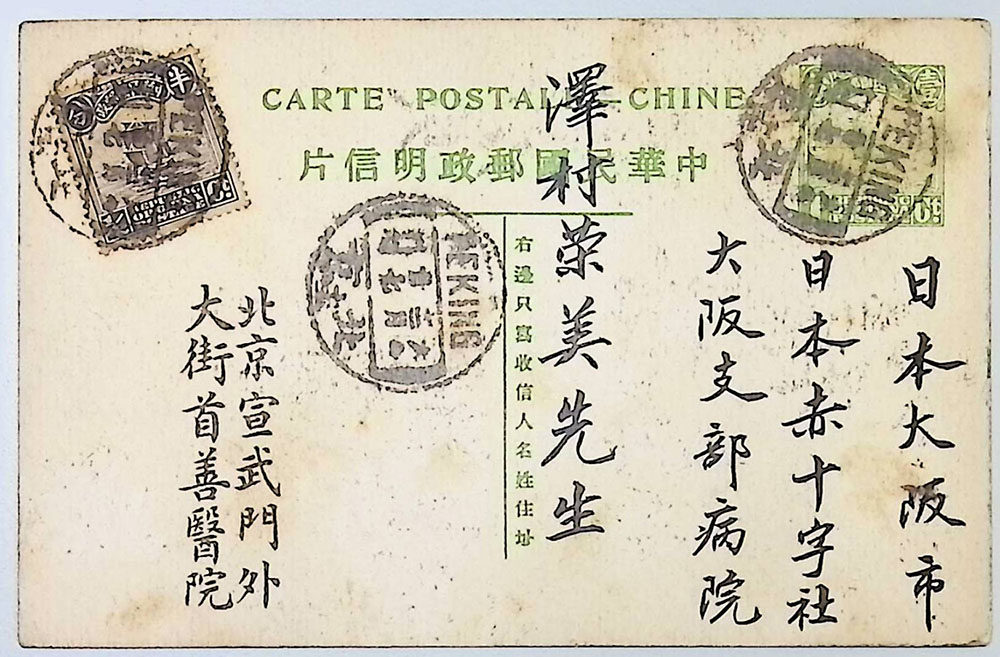 CARTE POSTALE—CHINE
中華民國郵政明信片
右邊只寫收信人名姓住址
日本大阪市
日本赤十字社
大阪支部病院
澤村荣美先生
北京宣武門外
大街首善醫院
PEKING
PEKING
PEKING
北京
半
壹